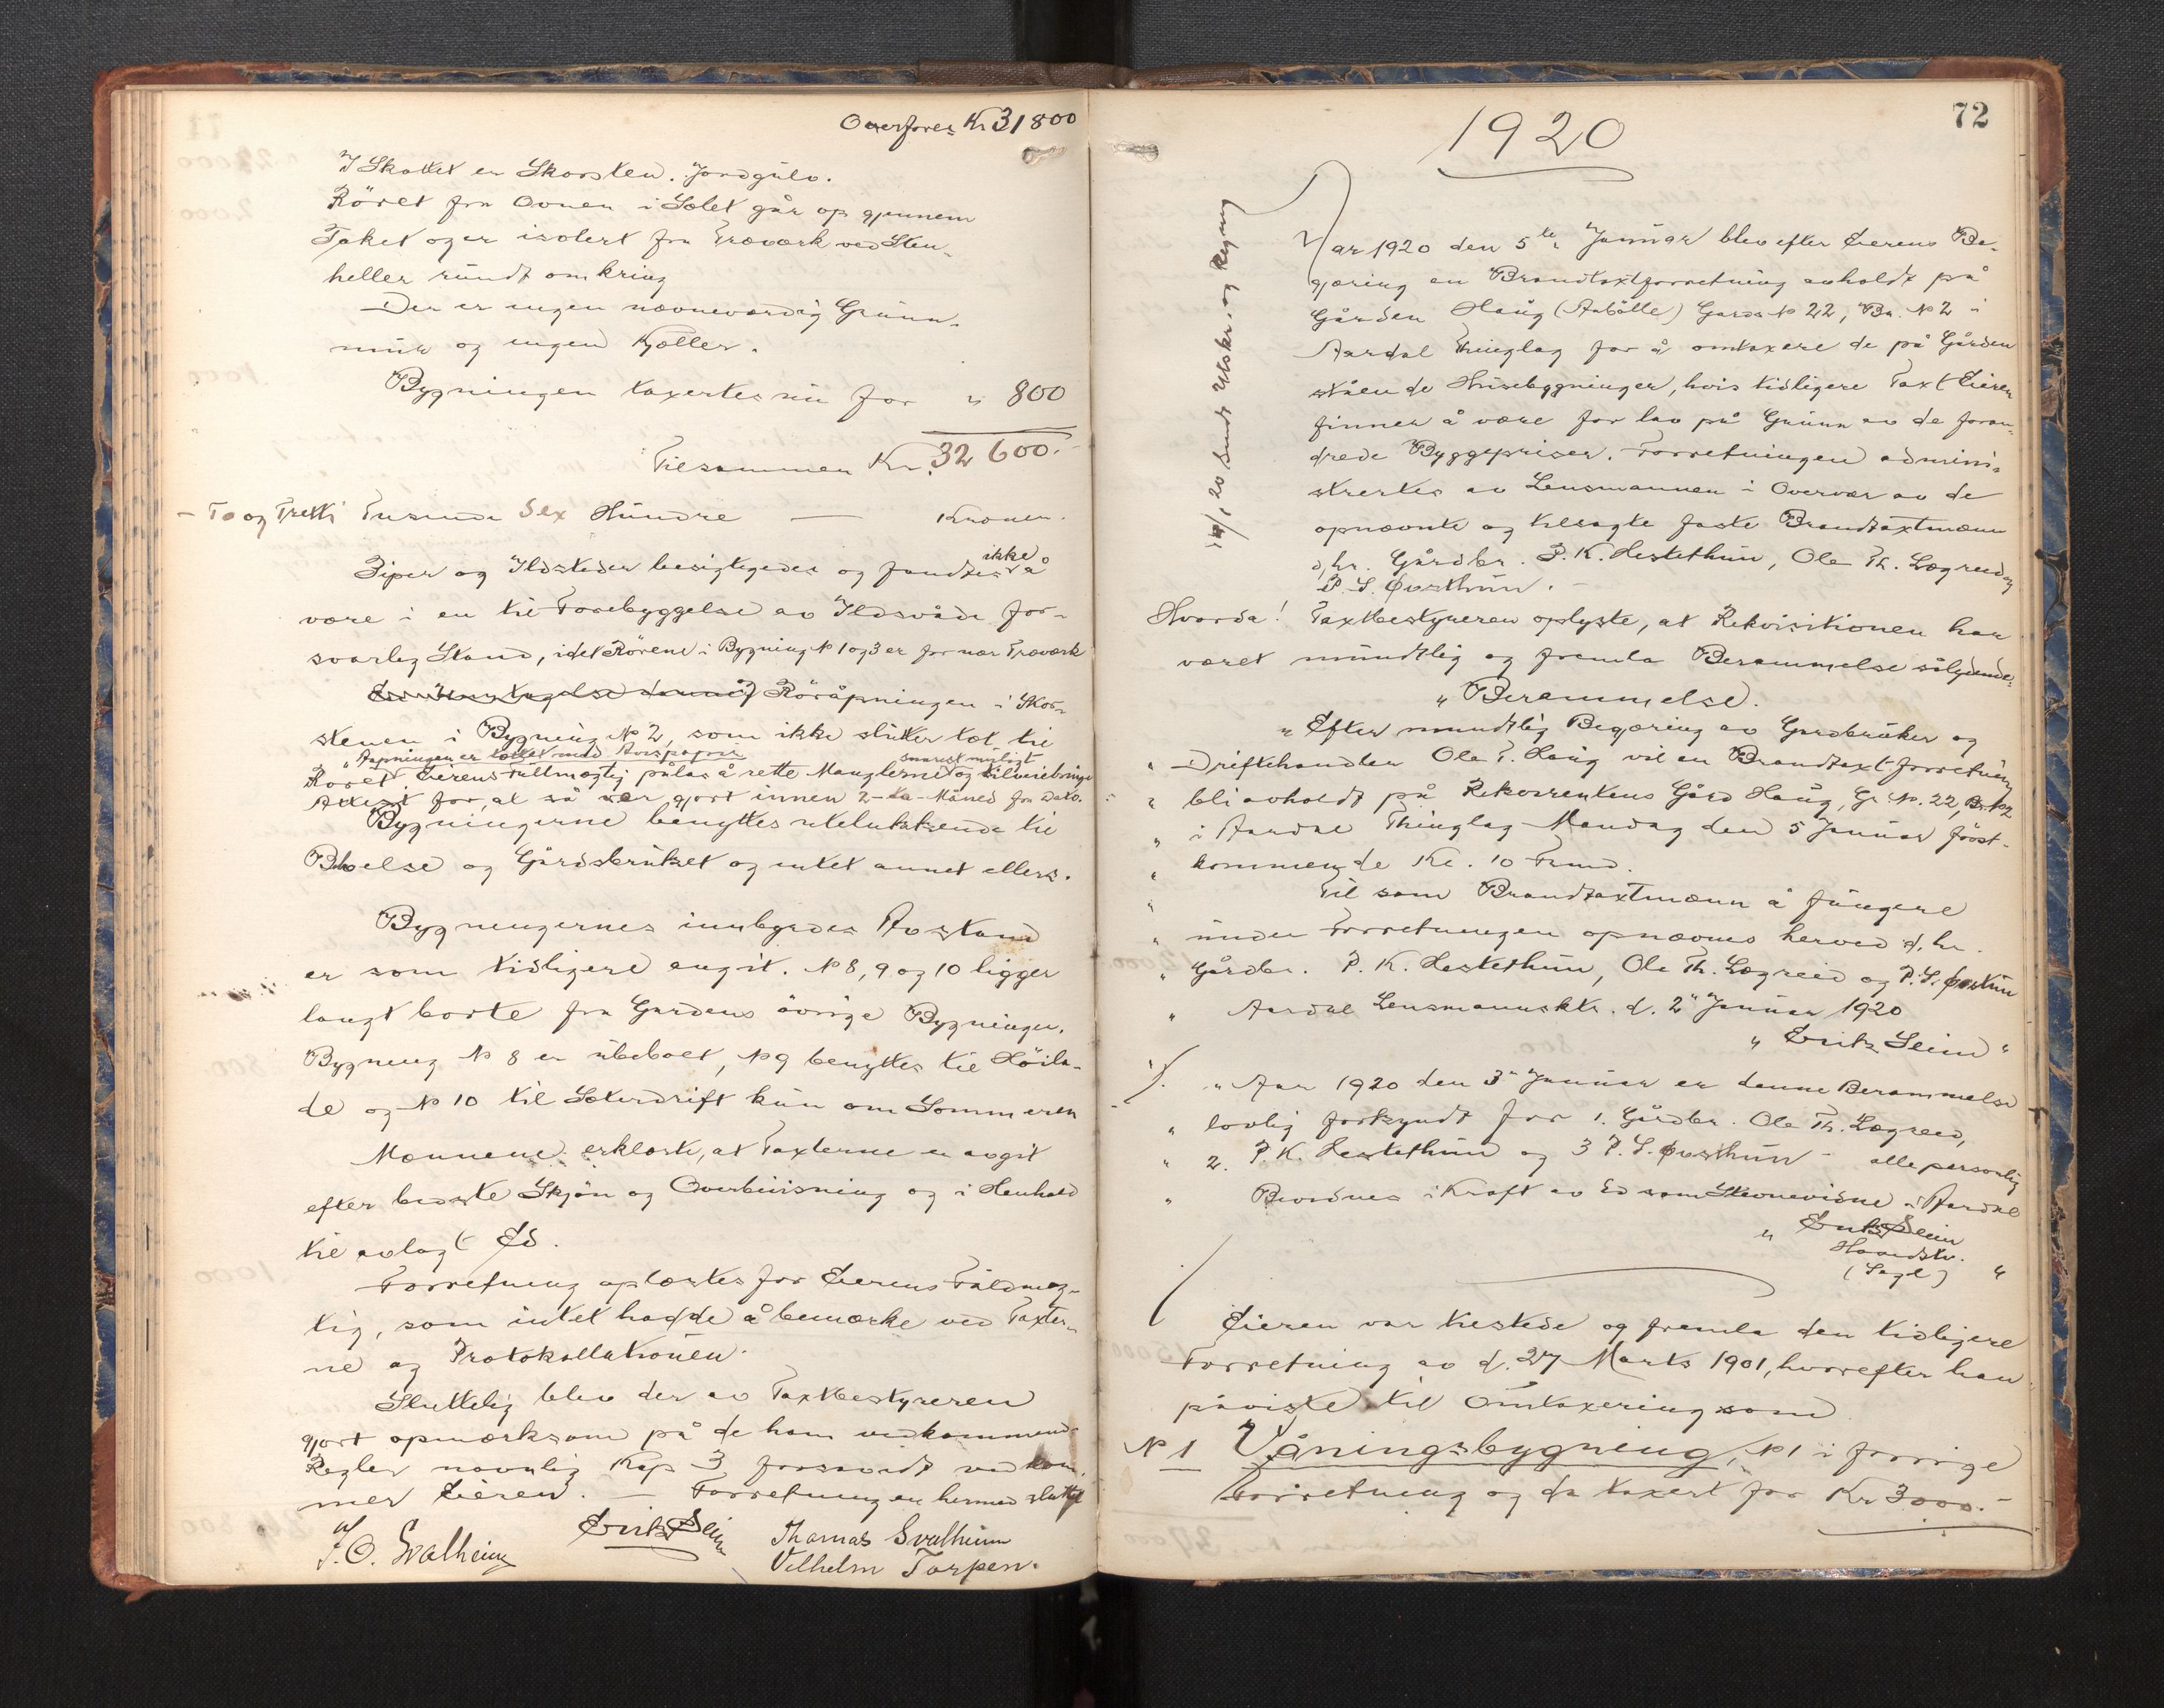 Overføres Kr 31800
I Skottet er Skorsten. Jordgulv.
Röret fra Ovnen i Selet går op gjennem
Taket og er isolert fra Træverk ved Sten-
heller rundt omkring
Der er ingen nævneværdig Grunn-
mur og ingen Kjæller.
Bygningen taxertes nu for " 800
Tilsammen Kr. 32 600.-
- To og Tretti Tusinde Sex Hundre — Kroner.
Piper og Ildsteder besigtigedes og fandtes ikke å
være i en til Forebyggelse av Ildsvåde for-
svarlig Stand, idet Rörene i Bygning № 1 og 3 er for nær Træverk
Röråpningen i Skor-
stenen i Bygning № 2, som ikke slutter tæt til
Aapningen er tættet med Avispapir snarest muligt
Röret. Eierens Fullmægtig pålas å rette Manglerne og tilveiebringe
Attest for, at så var gjort innen 2-to-Måned fra Dato.
Bygningerne benyttes utelukkende til
Beboelse og Gårdsbruket og intet annet ellers.
Bygningernes innbyrdes Avstand
er som tidligere angit. № 8, 9 og 10 ligger
langt borte fra Gardens övrige Bygninger.
Bygning № 8 er ubeboet, № 9 benyttes til Höila-
de og № 10 til Sæterdrift kun om Sommeren
Mænnene erklærte, at Taxterne er avgit
efter bedste Skjön og Overbevisning og i Henhold
til avlagt Ed.
Forretning oplæstes for Eierens Fuldmæg-
tig, som intet hadde å bemærke ved Taxter-
ne og Protokollationen.
Sluttelig blev der av Taxtbestyreren
gjort opmærksom på de ham vedkommende
Regler navnlig Kap 3 forsåvidt vedkom-
mer Eieren. — Forretningen hermed sluttet
J. O. Svalheim Erik Seim Thomas Svalheim
Vilhelm Torpen.
72
1920
14/1 20 sendt Utskr. og Regning
Aar 1920 den 5te Januar blev efter Eierens Be-
gjæring en Brandtaxtforretning avholdt på
Gården Haug (Aabölle) Gards № 22, Br. № 2 i
Aardal Thinglag for å omtaxere de på Gården
stående Husebygninger, hvis tidligere Taxt Eieren
finner å være for lav på Grunn av de foran-
drede Byggepriser. Forretningen admini-
strertes av Lensmannen i Overvær av de
opnævnte og tilsagte faste Brandtaxtmænn
d,hr. Gårdbr. P. K. Hestethun, Ole Th. Lægreid og
P. S. Øvsthun. -
Hvorda! Taxtbestyreren oplyste, at Rekvisitionen har
været mundtlig og fremla Berammelse sålydende:
" Berammelse.
" Efter mundtlig Begjæring av Gardbruker og
" Driftehandler Ole T. Haug vil en Brandtaxtforretning
" bli avholdt på Rekvirentens Gård Haug, Gr. № 22, Br. № 2
" i Aardal Thinglag Mandag den 5 Januar först-
" kommende Kl. 10 Form.
" Til som Brandtaxtmænn å fungere
" under Forretningen opnævnes herved d. hr.
" Gårdbr. P. K. Hestethun, Ole Th. Lægreid og P. S. Øvsthun
" Aardal Lensmannskt. d. 2" Januar 1920
" Erik Seim "
" Aar 1920 den 3" Januar er denne Berammelse
" lovlig forkyndt for 1. Gårdbr. Ole Th. Lægreid,
" 2. P. K. Hestethun og 3 P. S. Øvsthun - alle personlig
" Bevidnes i Kraft av Ed som Stevnevidne i Aardal
" Erik Seim
Hovedstv.
(Segl) "
Eieren var tilstede og fremla den tidligere
Forretning av d. 27 Marts 1901, hvorefter han
påviste til Omtaxering som
№ 1 Våningsbygning, № 1 i forrige
Forretning og da taxert for Kr 3000.-